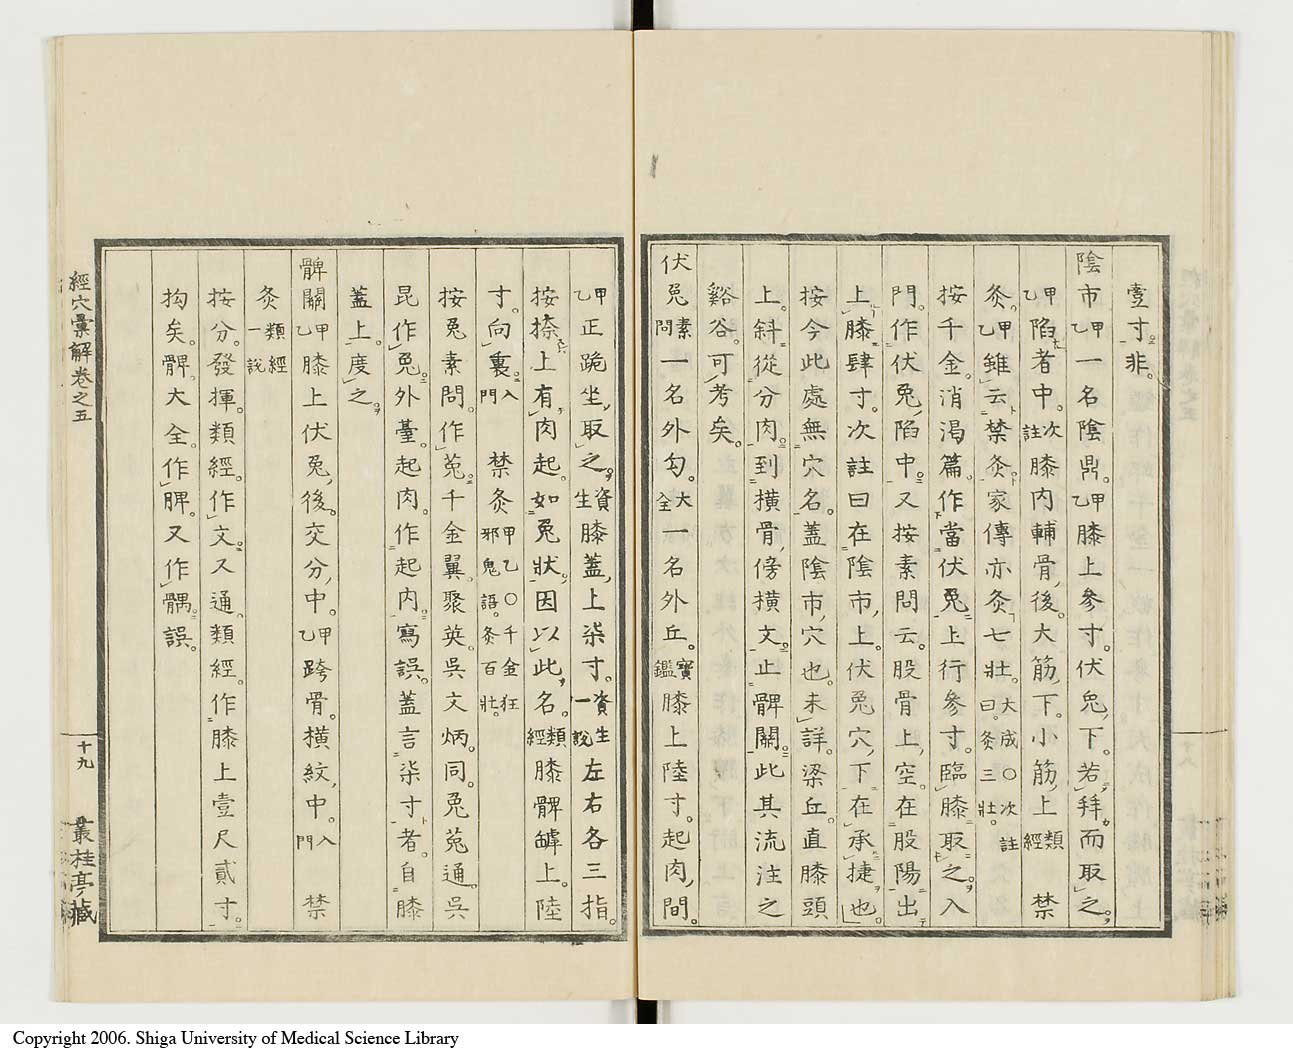 壹寸。非。
陰市甲乙一名陰鼎。甲乙膝上參寸。伏兎下。若拜而取之。
甲乙陷者中。次註膝内輔骨後。大筋下。小筋上類經 禁
灸。甲乙雖云禁灸。家傳亦灸七壯。大成曰。灸三壯。〇次註
按千金。消渴篇。作當伏兎上行參寸。臨膝取之。入
門。作伏兎陷中。又按素問云。股骨上空。在股陽。出
上膝肆寸。次註曰在陰市上。伏兎穴下。在承揵也。
按今此處無穴名。蓋陰市穴也。未詳。梁丘。直膝頭
上。斜從分肉。到橫骨傍橫文。止髀關。此其流注之
谿谷。可考矣。
伏兎素問一名外勾。大全一名外丘。寶鑑膝上陸寸。起肉間。
甲乙正跪坐取之。資生膝蓋上柒寸。資生一說左右各三指。
按捺上有肉起。如兎狀。因以此名。類經膝髀罅上。陸
寸。向裏。入門 禁灸甲乙〇千金狂邪鬼語。灸百壯。
按兎素問。作菟。千金翼。聚英。吳文炳。同。兎菟通。吳
昆作兔。外臺。起肉。作起内。寫誤。蓋言柒寸者。自膝
蓋上度之。
髀關甲乙膝上伏兎後。交分中。甲乙跨骨。橫紋中。入門 禁
灸類經一說
按分。發揮。類經。作文。又通。類經。作膝上壹尺貳寸。
拘矣。髀。大全。作脾。又作髃。誤。
經穴彙解卷之五
十九
叢桂亭藏
Copyright 2006. Shiga University of Medical Science Library